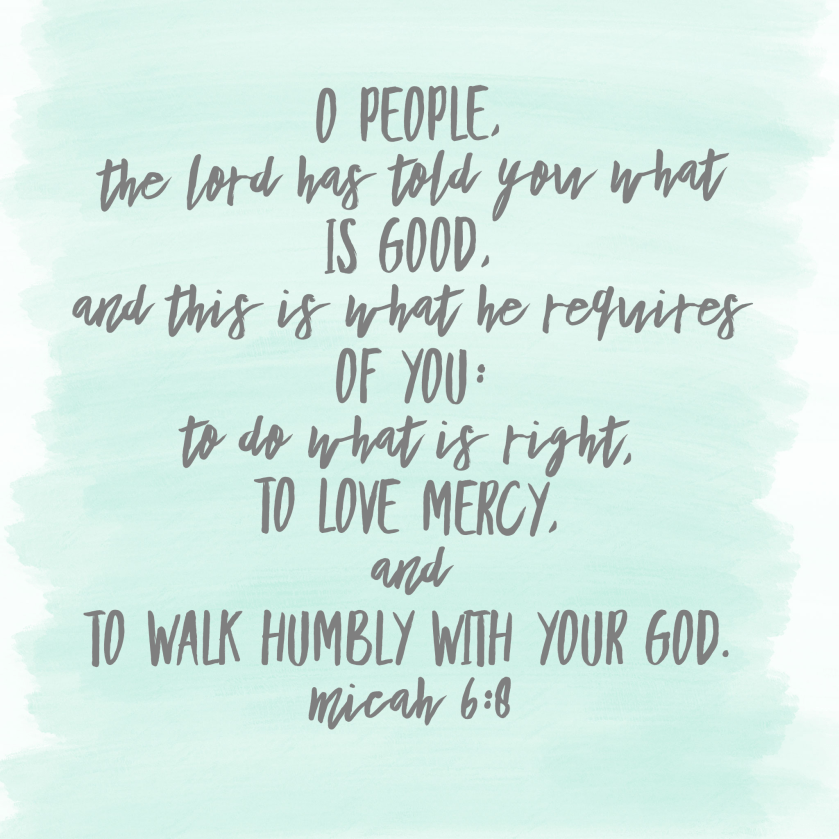 O PEOPLE,
the lord has told you what
IS GOOD,
and this is what he requires
OF YOU:
to do what is right,
TO LOVE MERCY,
and
TO WALK HUMBLY WITH YOUR GOD.
micah 6:8